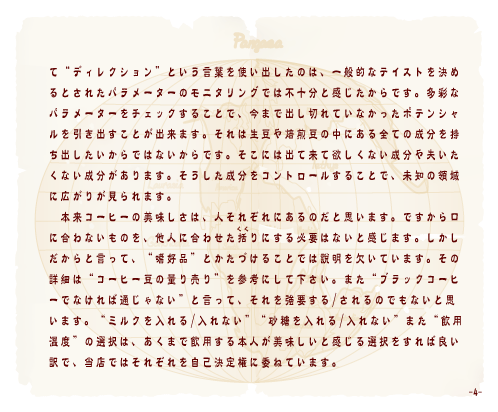 Pangaea
て“ディレクション”という言葉を使い出したのは、一般的なテイストを決め
るとされたパラメーターのモニタリングでは不十分と感じたからです。多彩な
パラメーターをチェックすることで、今まで出し切れていなかったポテンシャ
ルを引き出すことが出来ます。それは生豆や焙煎豆の中にある全ての成分を持
ち出したいからではないからです。そこには出て来て欲しくない成分や失いた
くない成分があります。そうした成分をコントロールすることで、未知の領域
に広がりが見られます。
本来コーヒーの美味しさは、人それぞれにあるのだと思います。ですから口
に合わないものを、他人に合わせた括り(くく)にする必要はないと感じます。しかし
だからと言って、“嗜好品”とかたづけることでは説明を欠いています。その
詳細は“コーヒー豆の量り売り”を参考にして下さい。また“ブラックコーヒ
ーでなければ通じゃない”と言って、それを強要する/されるのでもないと思
います。“ミルクを入れる/入れない”“砂糖を入れる/入れない”また“飲用
温度”の選択は、あくまで飲用する本人が美味しいと感じる選択をすれば良い
訳で、当店ではそれぞれを自己決定権に委ねています。
-4-